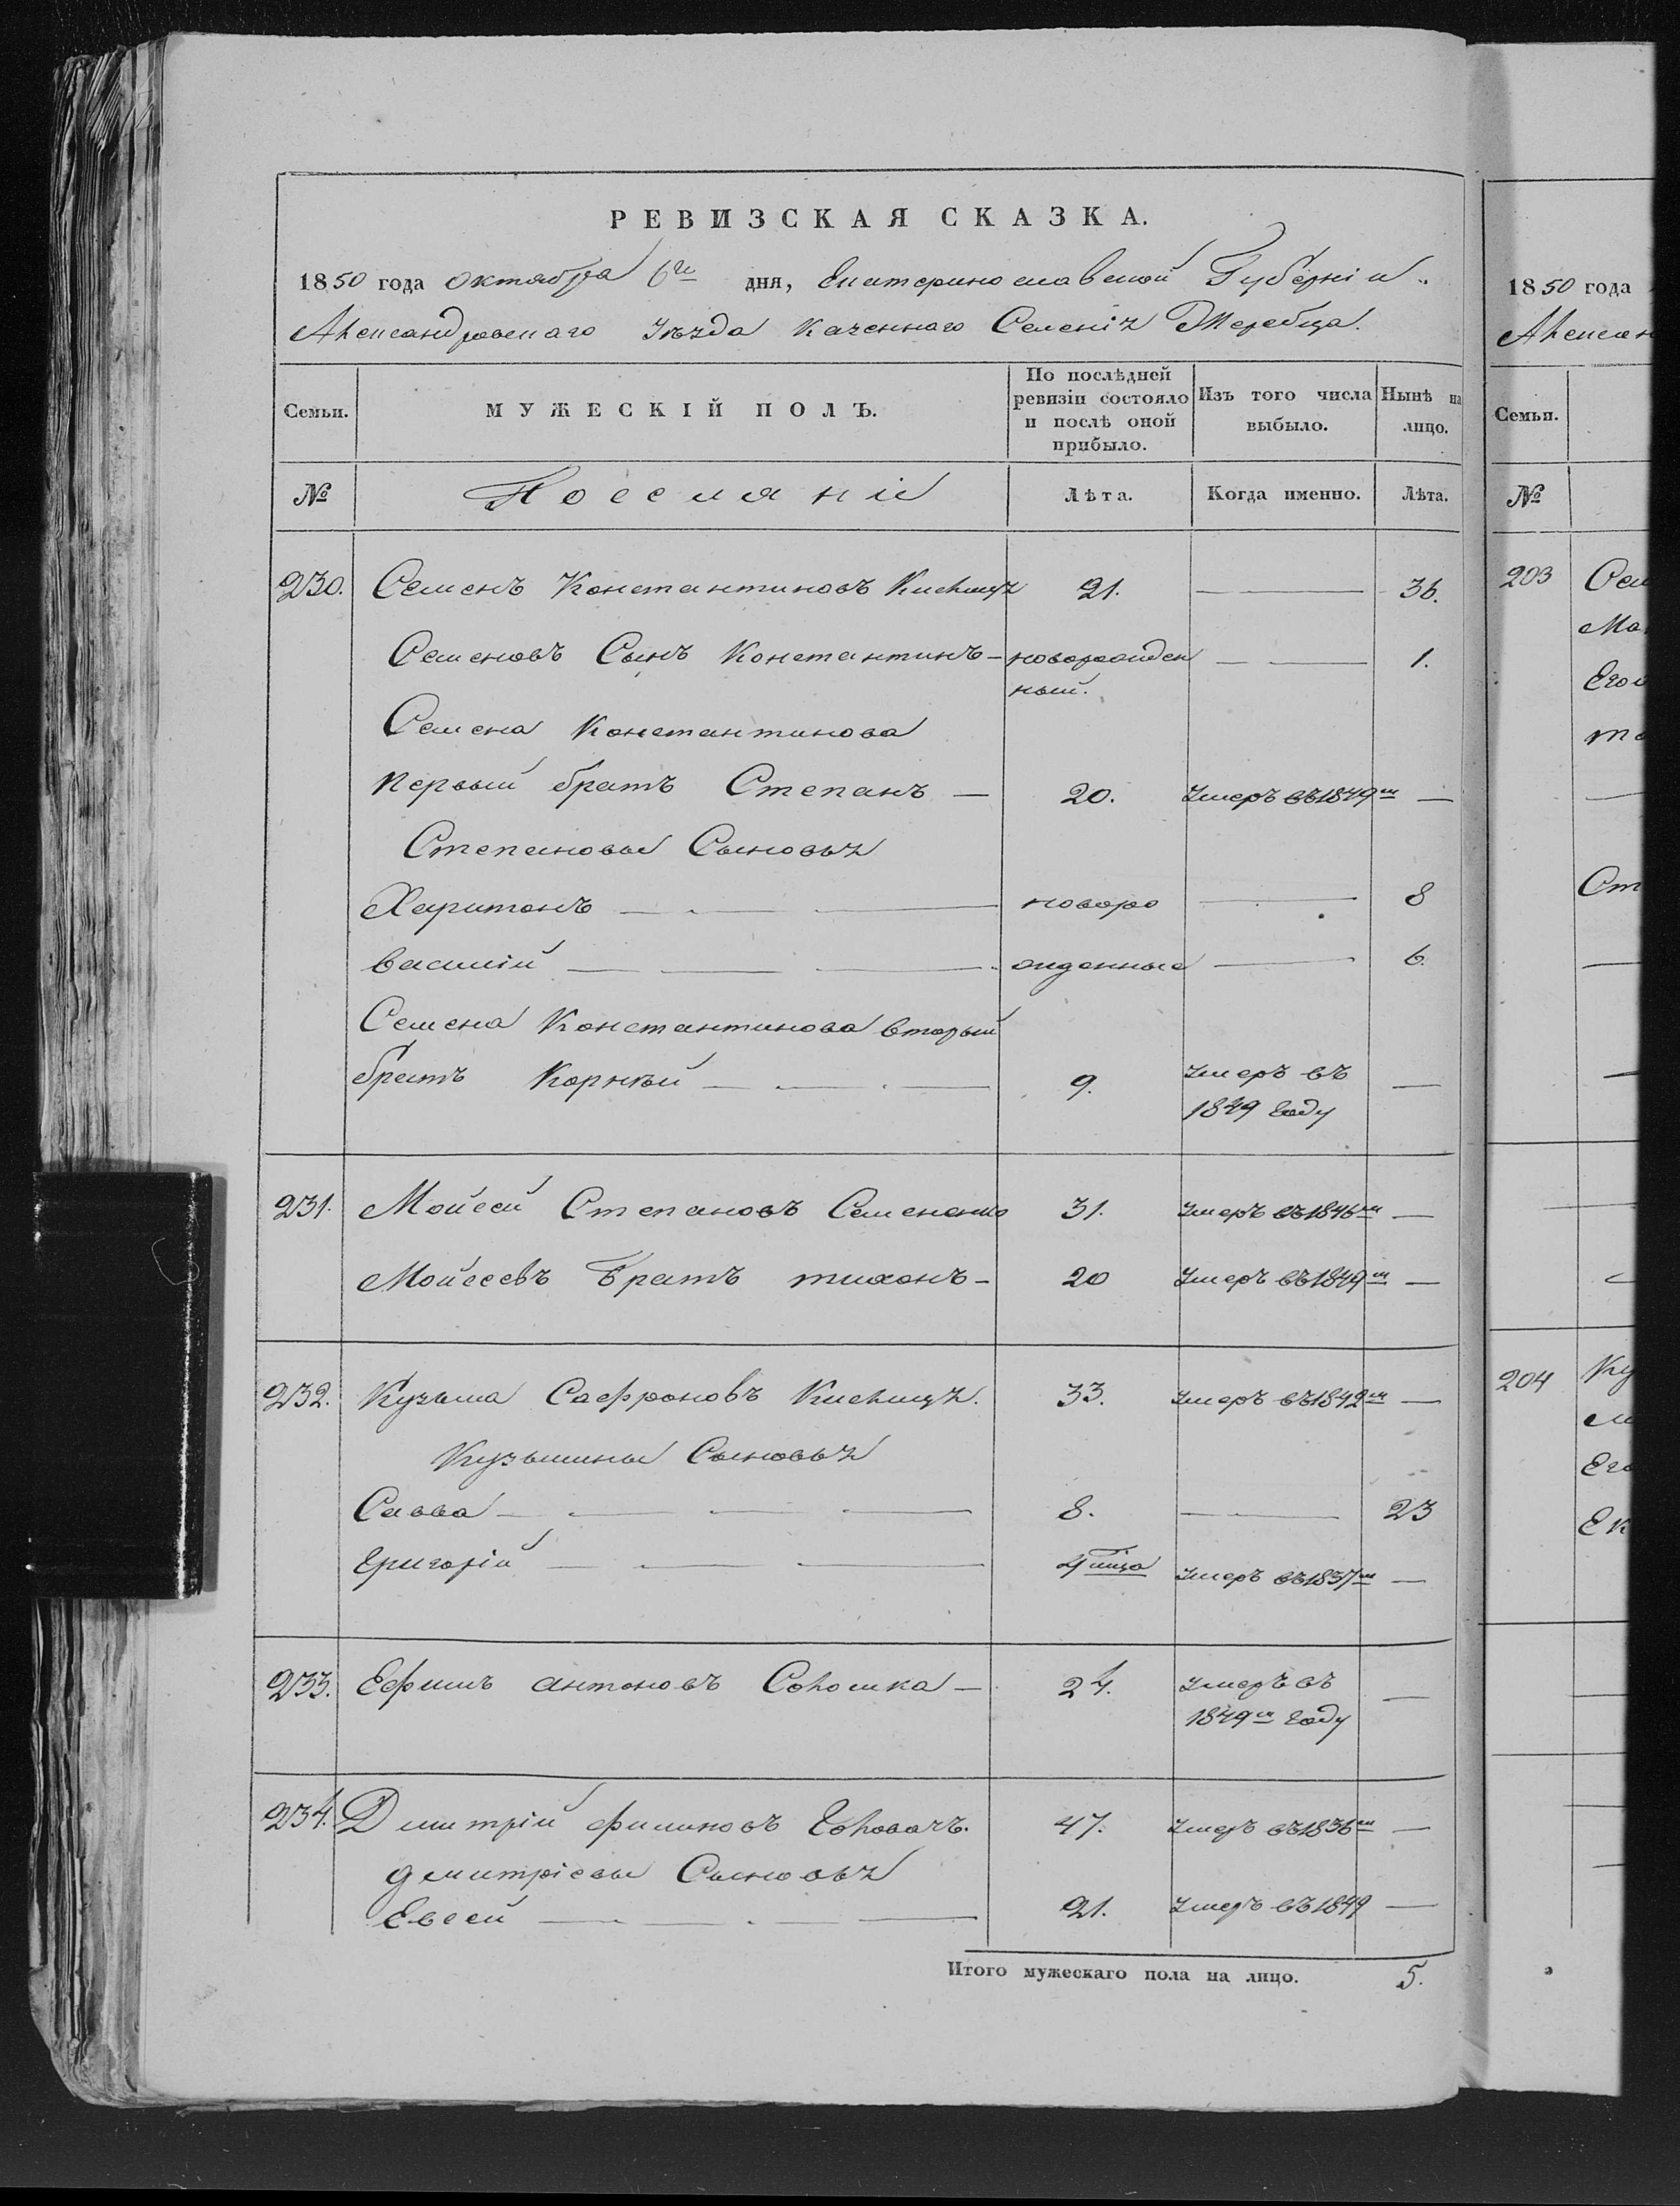 РЕВИЗСКАЯ СКАЗКА.
1850 года Октября 6го дня, Екатеринославской Губерніи
Александровскаго Уѣзда Казеннаго Селенія Жеребца.
Семьи.
МУЖЕСКІЙ ПОЛЪ.
По послѣдней ревизіи состояло и послѣ оной прибыло.
Изъ того числа выбыло.
Нынѣ на лицо.
№ Лѣта. Когда именно. Лѣта.
230. Семенъ Константиновъ 21. — 36.
Семеновъ Сынъ Константинъ — новорожден — 1.
ный.
Семена Константинова
первый братъ Степанъ — 20. Умеръ въ 1849м —
Степановы Сыновья
Харитонъ — новоро — 8
Василій — жденные — 6.
Семена Константинова вторый
братъ Корнѣй — 9. Умеръ въ —
1849 Году
231. Мойсей Степановъ Семененко 31. Умеръ въ 1846м —
Мойсеевъ Братъ тихонъ — 20 Умеръ въ 1849м —
232. Кузьма Сафроновъ 33. Умеръ въ 1842м —
Кузьмины Сыновья
Савва — 8. — 23
Григорій — Умеръ въ 1837м —
233. Ефимъ антоновъ Соломка — 24. Умеръ въ —
1849м Году
234. Дмитрій филиновъ Головачъ. 47. Умеръ въ 1836м —
дмитріевы Сыновья
Евсей — 21. Умеръ въ 1849 —
Итого мужескаго пола на лицо. 5.
1850 года
Семьи.
№
203
204